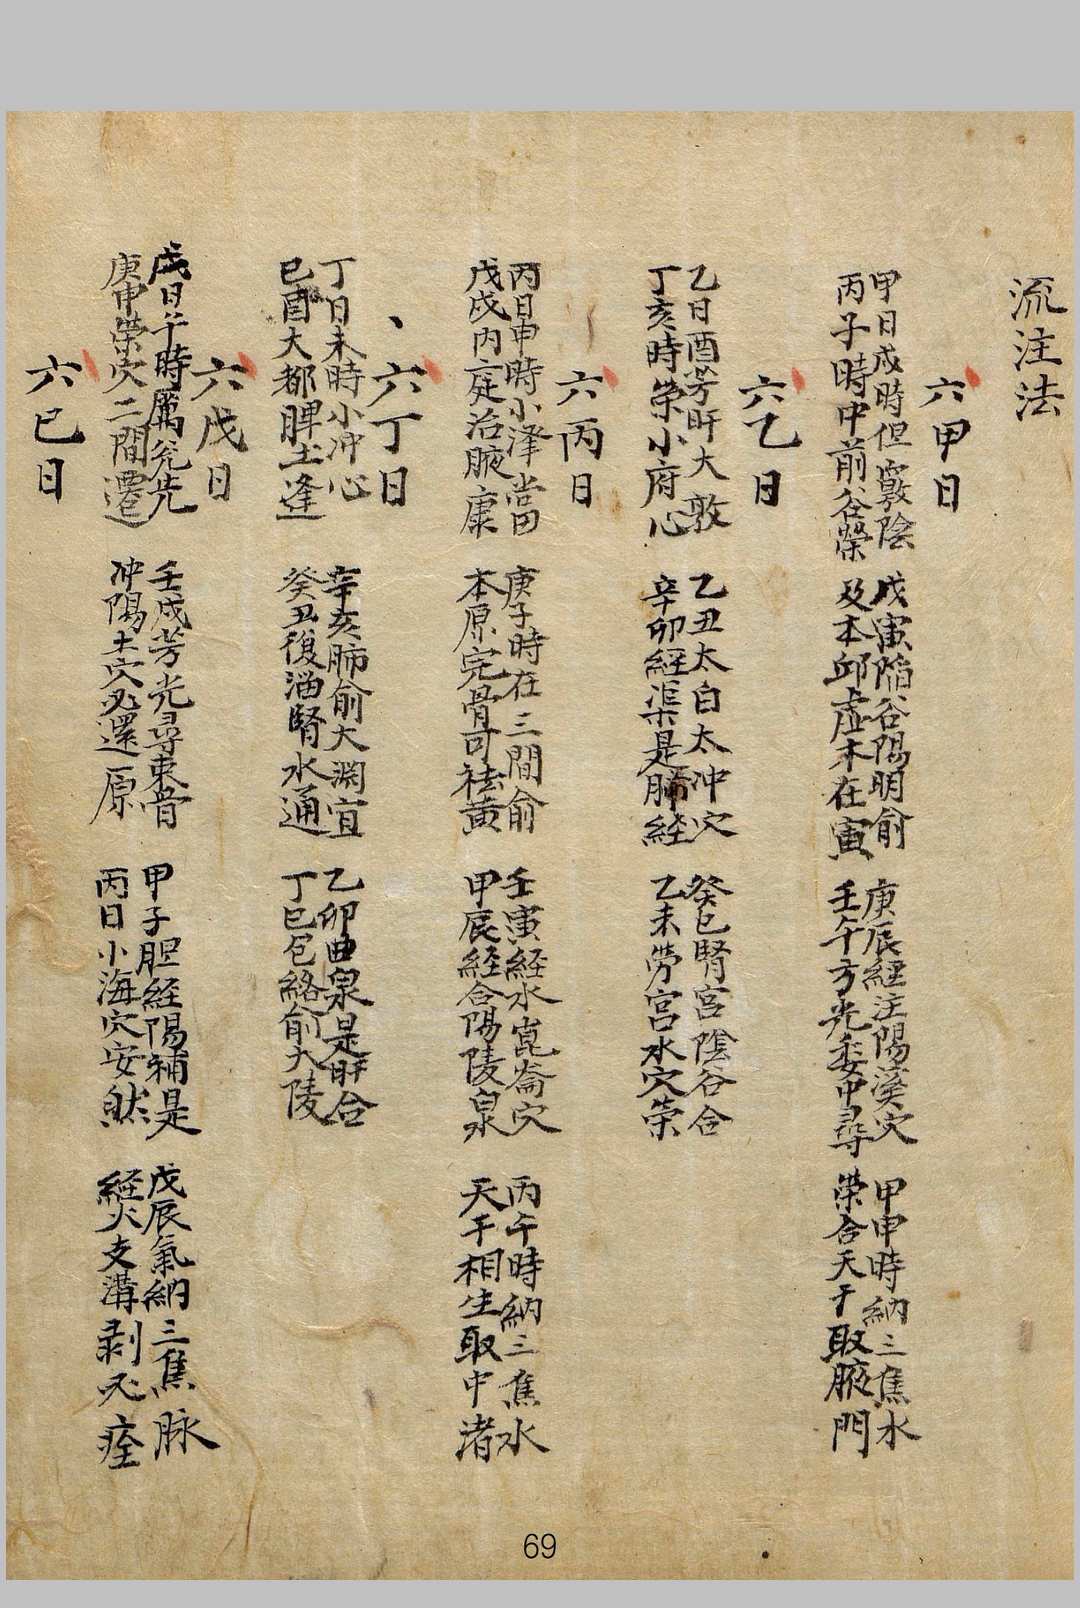 流注法
六甲日
甲日戌時但竅陰
丙子時中前谷滎
戊寅陷谷陽明俞
及本邱虛木在寅
庚辰經注陽溪穴
壬午方光委中尋
甲申時納三焦水
榮合天干取腋門
六乙日
乙日酉芳肝大敦
丁亥時榮小府心
乙丑太白太冲穴
辛卯經渠是肺經
癸巳腎宮陰谷合
乙未勞宮水穴荣
六丙日
丙日申時小澤當
戊戌內庭治腋康
庚子時在三間俞
本原完骨可祛黃
壬寅経水崑崙穴
甲辰経合陽陵泉
丙午時納三焦水
天干相生取中渚
六丁日
丁日未時小冲心
己酉大都脾土逢
辛亥肺俞大渕宜
癸丑復溜腎水通
乙卯曲泉是肝合
丁巳包絡俞大陵
六戊日
戊日午時厲兊先
庚申荣穴二間遷
壬戌芳光尋束骨
冲陽土穴必還原
甲子胆経陽補是
丙日小海穴安然
戊辰氣納三焦脉
經火支溝剥必痊
六己日
69